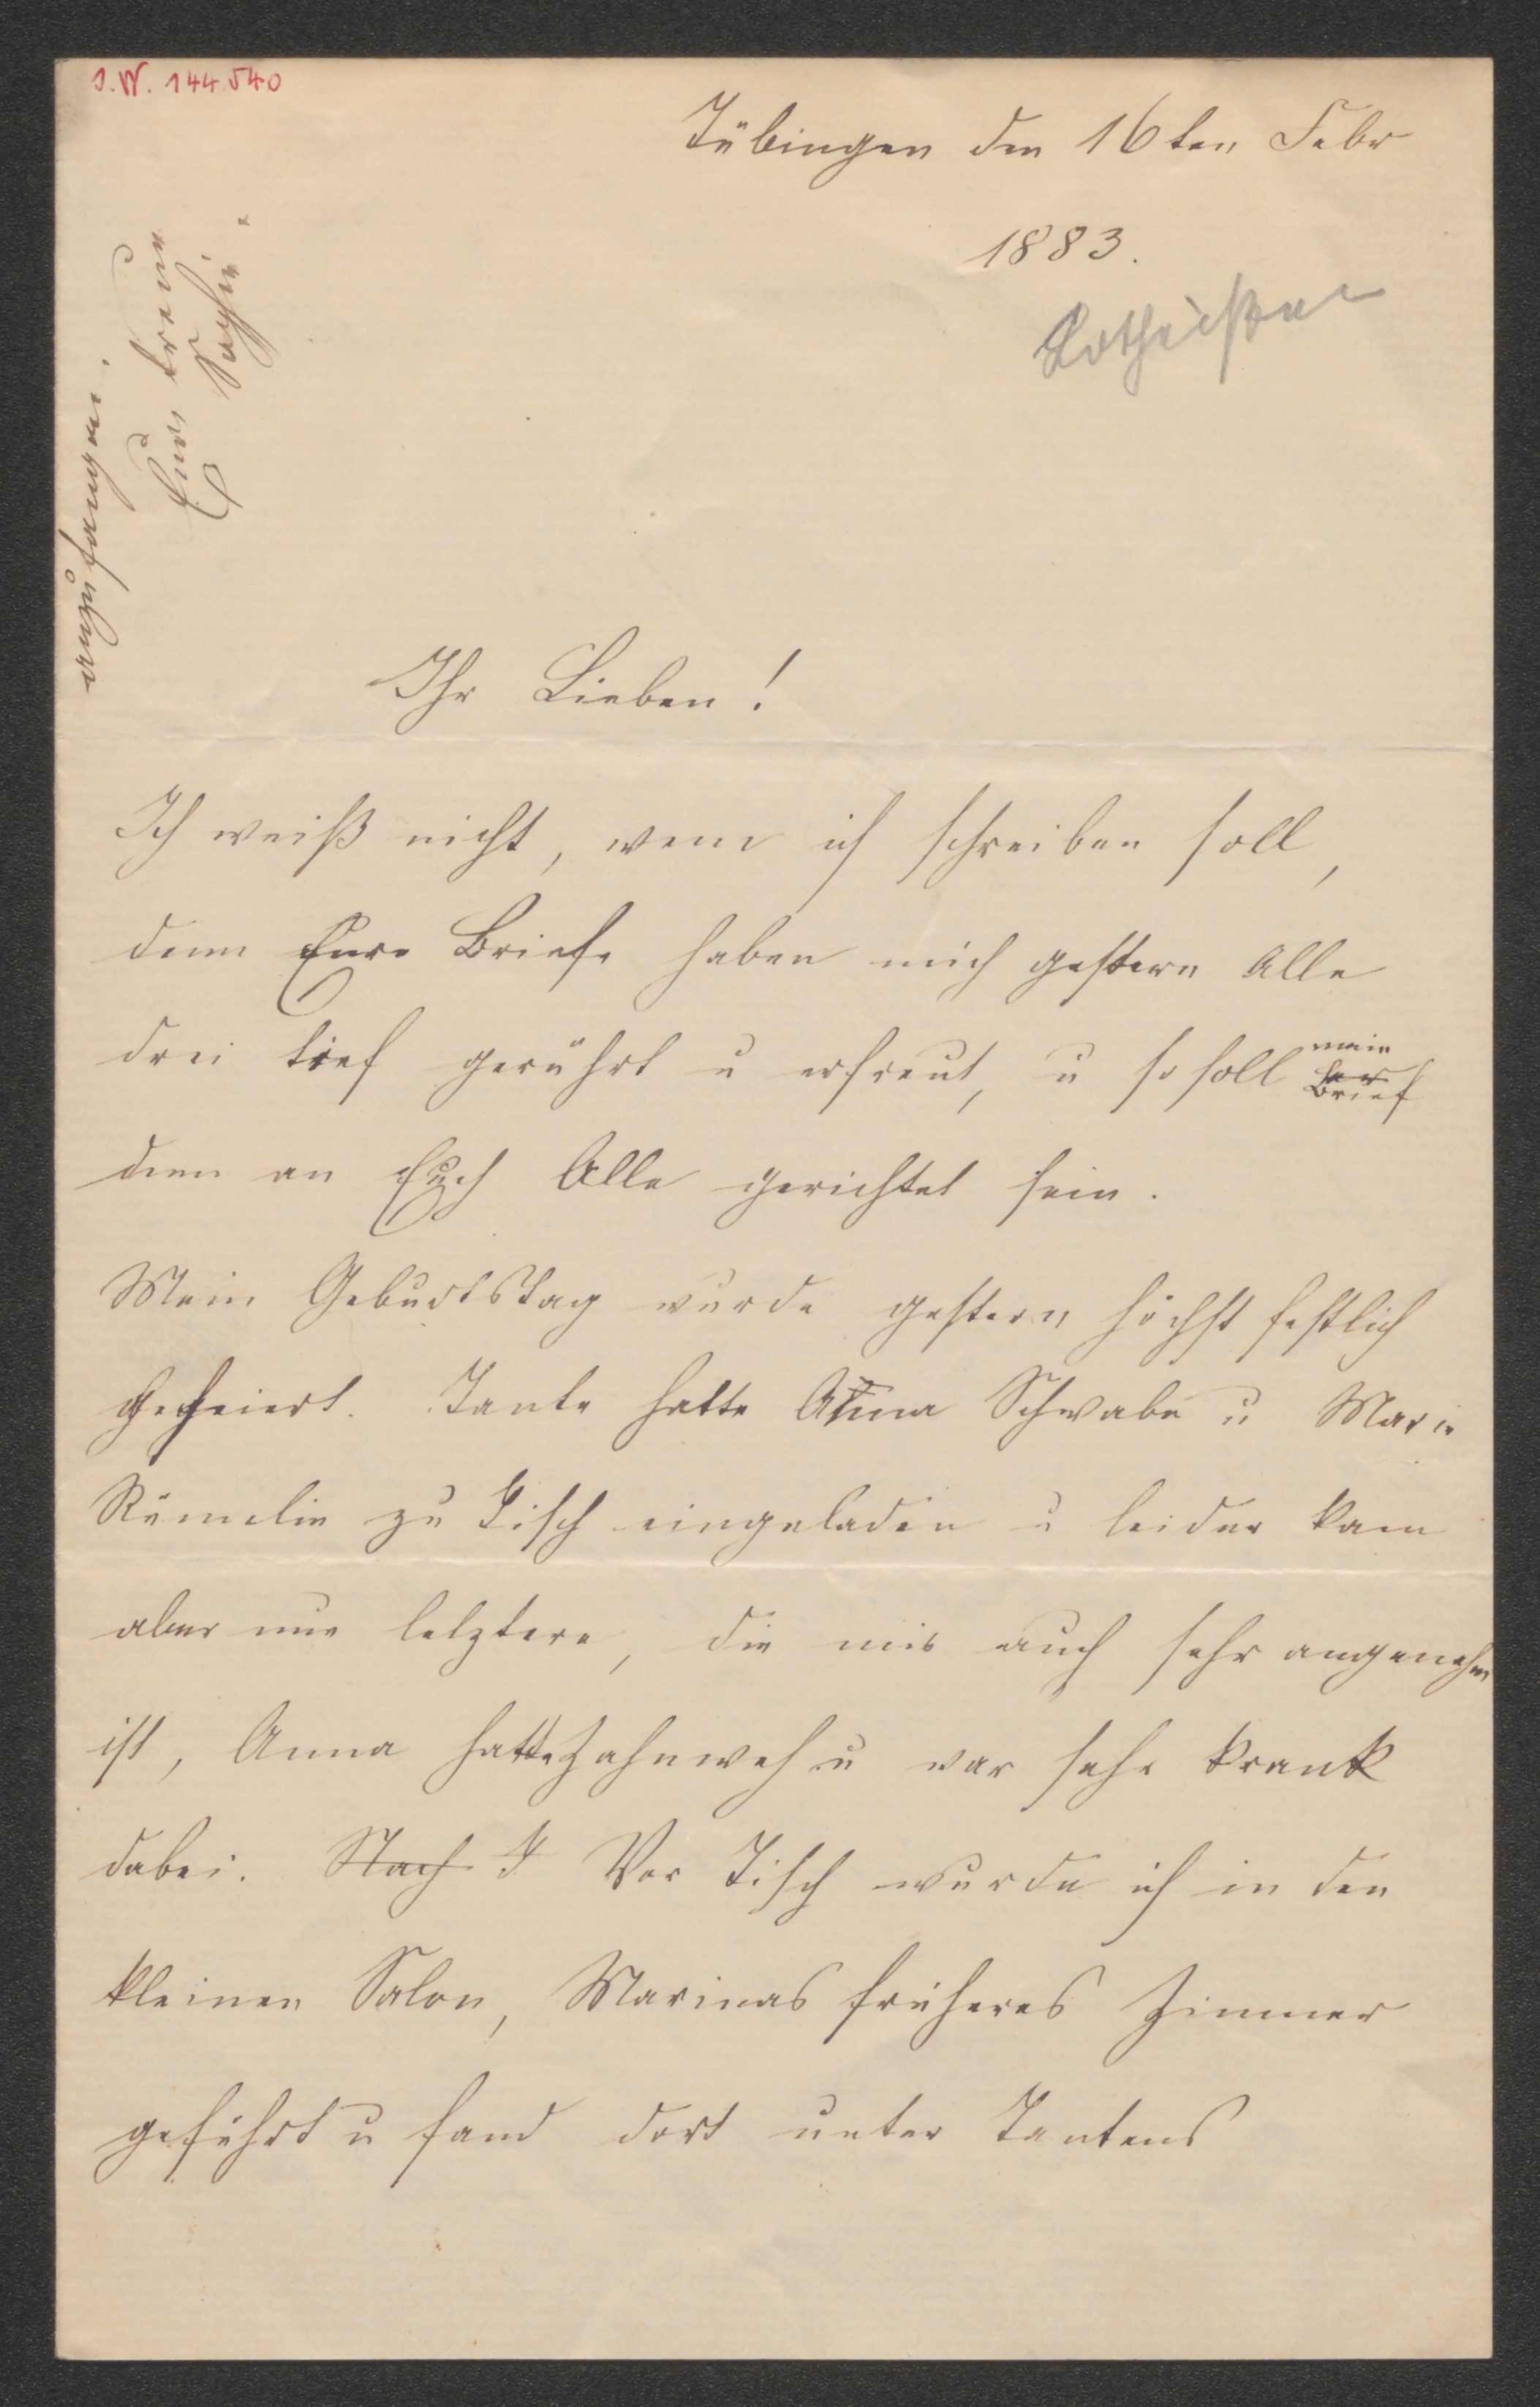 J.N. 144.540
Tübingen den 16ten Febr
1883.
Lotheißen
Ihr Lieben!
Ich weiß nicht, wem ich schreiben soll,
denn Eure Briefe haben mich gestern Alle
drei tief gerührt u erfreut, u so soll mein
Brief
denn an Euch Alle gerichtet sein.
Mein Geburtstag wurde gestern höchst festlich
gefeiert. Tante hatte Anna Schwabe u Marie
Rümelin zu Tisch eingeladen u leider kam
aber nur letztere, die mir auch sehr angenehm
ist, Anna hatte Zahnweh u war sehr krank
dabei. Nach T Vor Tisch wurde ich in den
kleinen Salon, Marinas früheres Zimmer
geführt u fand dort unter Tantens
Eure treue
Sophie